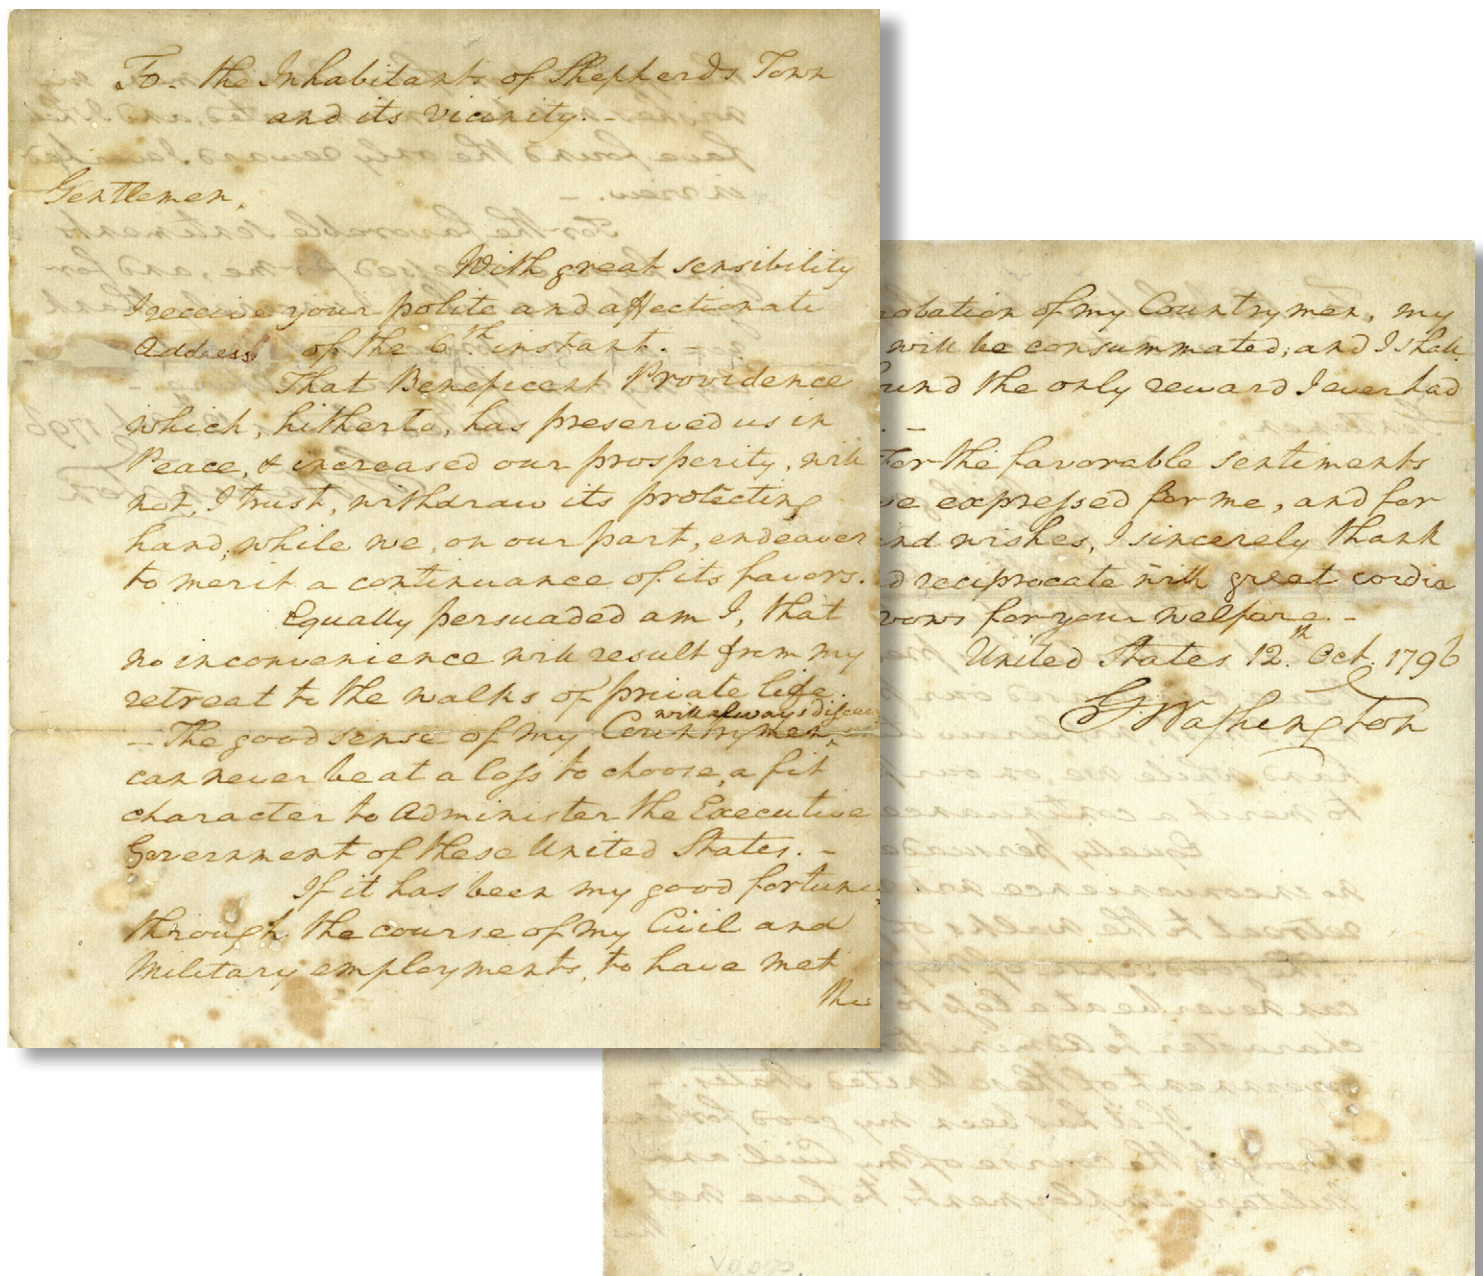 To the Inhabitants of Shepherds Town
and its vicinity. -
Gentlemen,
With great sensibility
I receive your polite and affectionate
Address of the 6th. instant. -
That Beneficent Providence
which, hitherto, has preserved us in
Peace, & increased our prosperity, will
not, I trust, withdraw its protecting
hand; while we, on our part, endeavor
to merit a continuance of its favors.
Equally persuaded am I, that
no inconvenience will result from my
retreat to the walks of private life.
will always
- The good sense of my Countrymen,
can never be at a loss to choose, a fit
character to administer the Executive
Government of these United States. -
If it has been my good fortune
through the course of my Civil and
Military employments, to have met
the
obation of my Countrymen, my
will be consummated; and I shall
und the only reward I ever had
. -
For the favorable sentiments
ve expressed for me, and for
nd wishes, I sincerely thank
d reciprocate with great cordia
vows for your welfare. -
United States 12th. Oct. 1796
G Washington